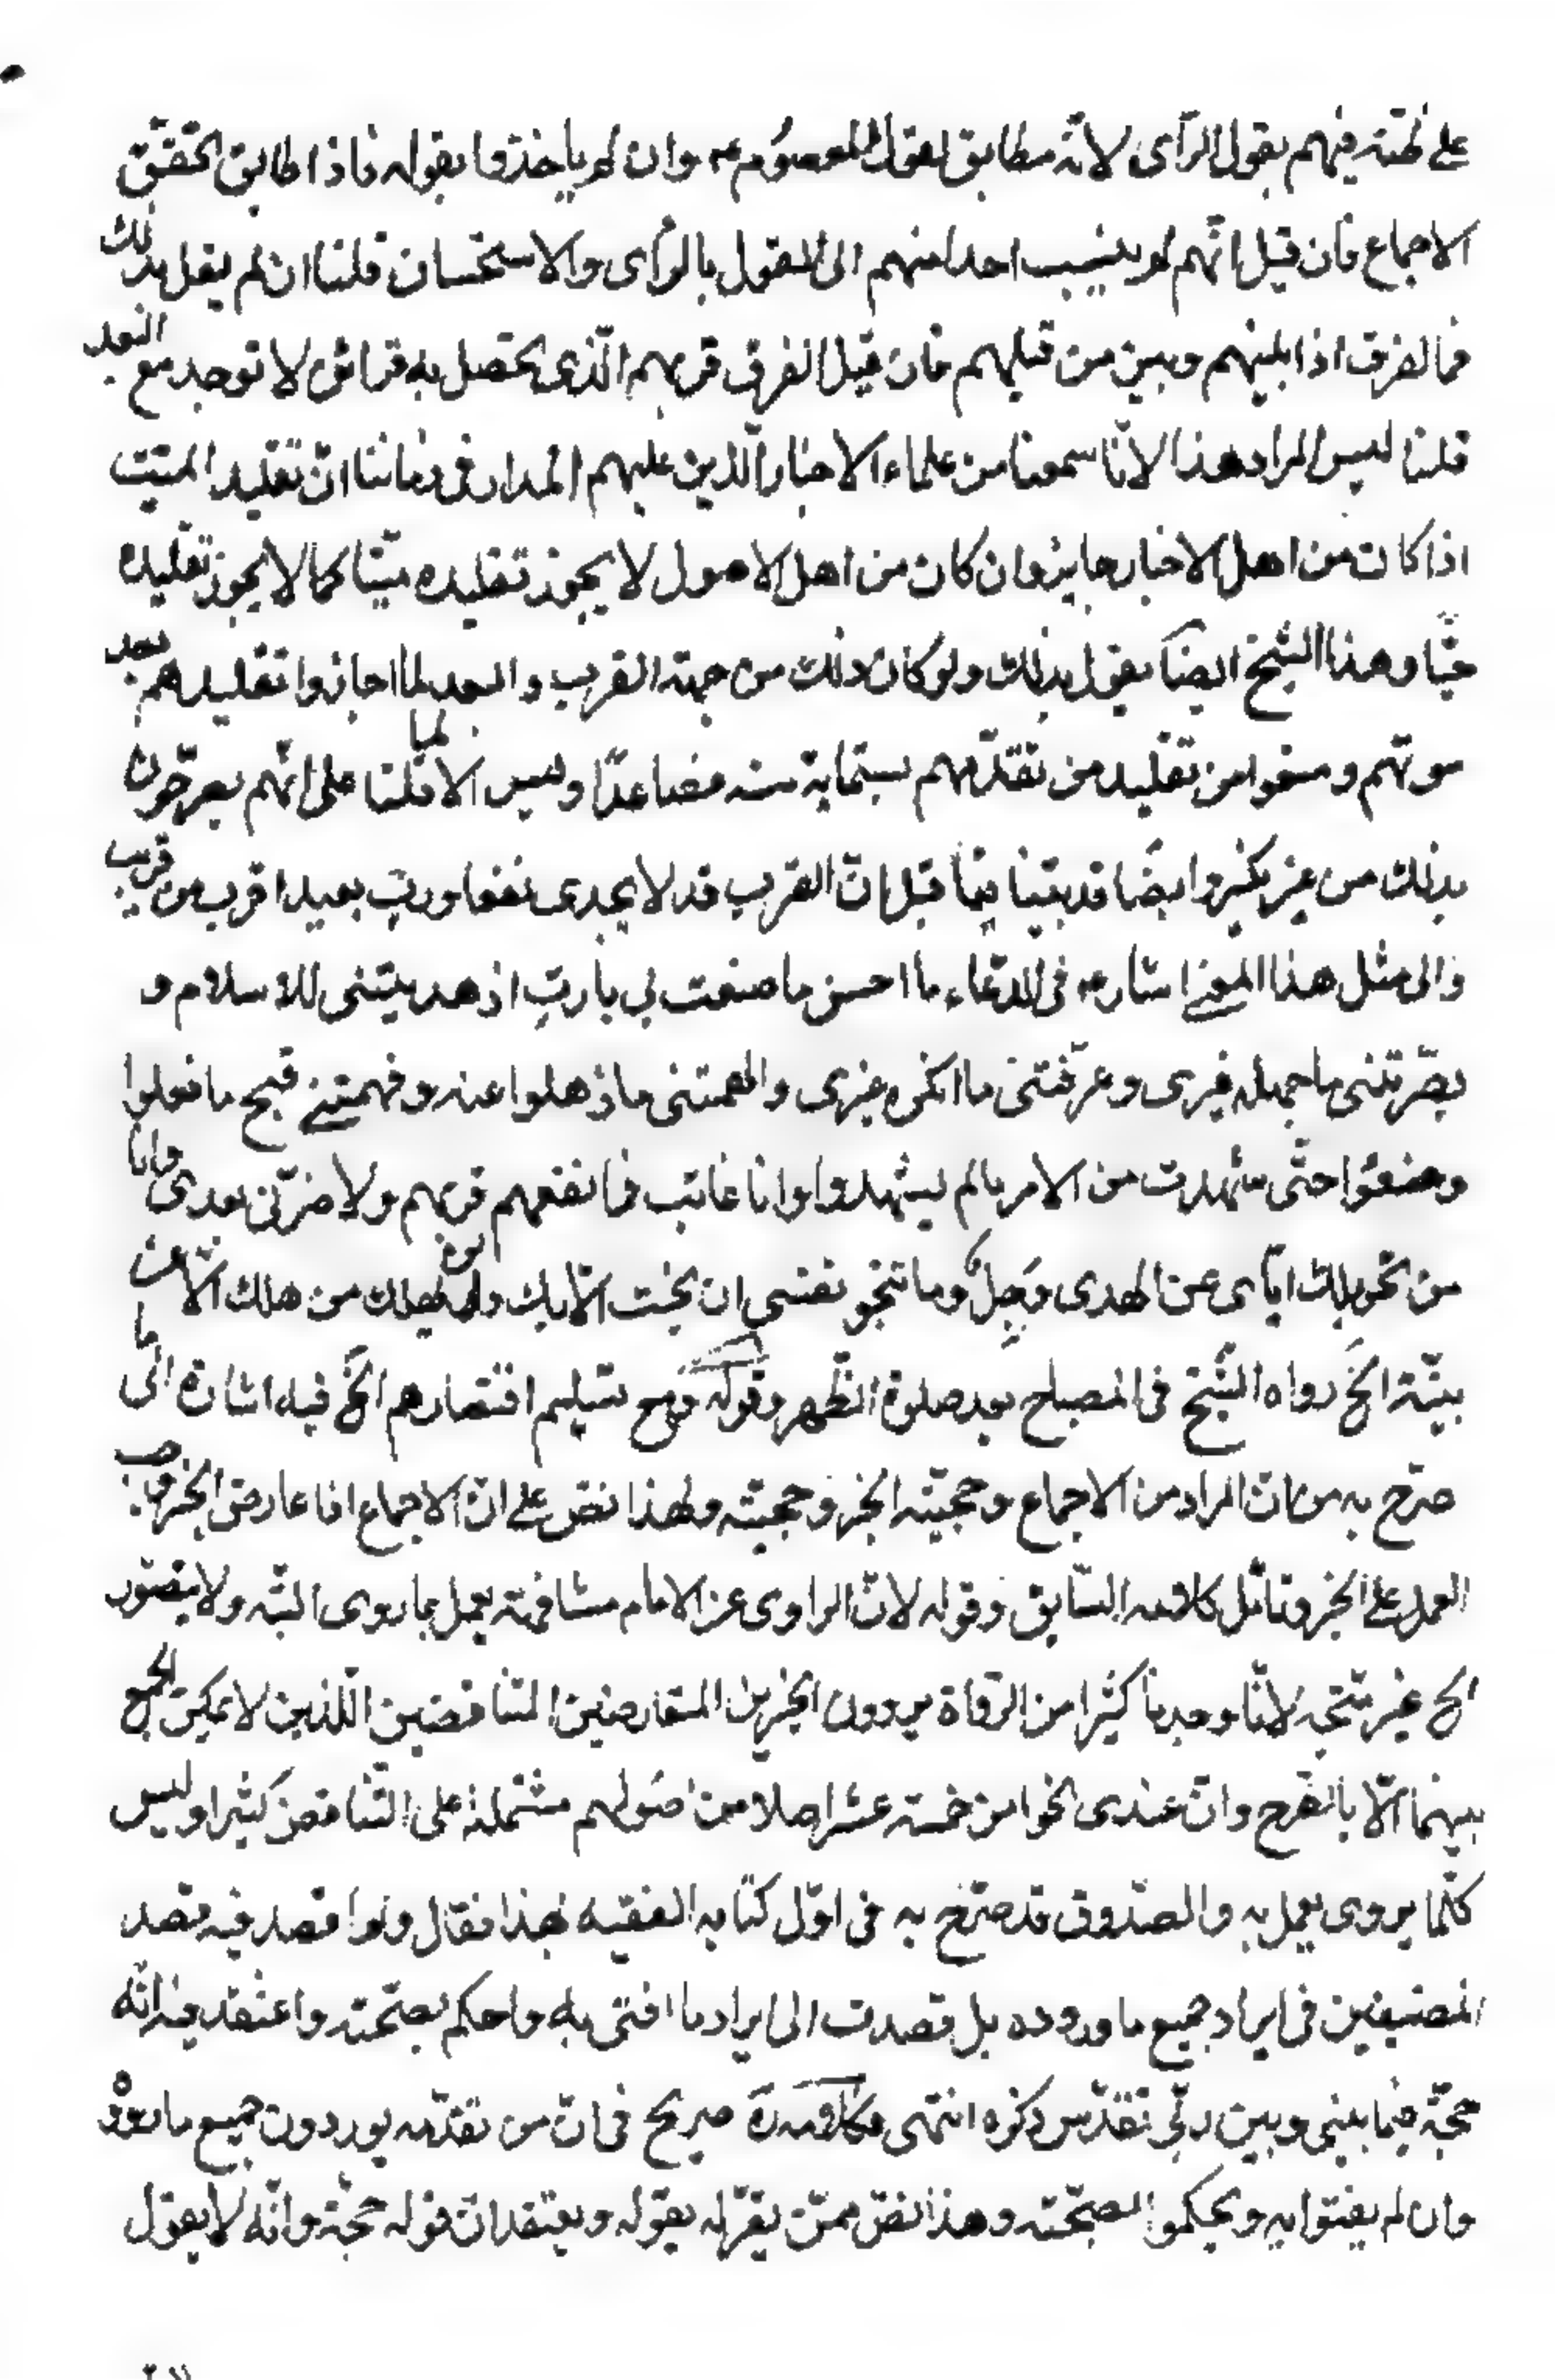 على ظنه فيهم بقول الرأى لانه مطابق لقول المعصوم ع وان لم ياخذوا بقوله فاذا طابق تحقق
الاجماع فان قيل انهم لم ينسب احدا منهم الى القول بالرأى والاستحسان قلنا ان لم يقل بذلك
فما الفرق اذا بينهم وبين من قبلهم فان قيل الفرق قربهم الّذى تحصل به قرائن لا توجد مع البعد
قلنا ليس المراد هذا لانّا سمعنا من علماء الاخبار الّذين عليهم المدار فى زماننا انّ تقليد الميّت
اذا كان من اهل الاخبار جايز وان كان من اهل الاصول لا يجوز تقليده ميّتا كما لا يجوز تقليده
حيّا وهذا الشيخ ايضا يقول بذلك ولو كان ذلك من جهة القرب والبعد لما اجازوا تقليدهم بعد
موتهم ومنعوا من تقليد من تقدّمهم بستماية سنه فصاعدًا وليس الا لما قلنا على انّهم يصرّحون
بذلك من غير نكير وايضا قد بيّنا فيما قبل انّ القرب قد لا يجدى نفعا وربّ بعيد اقرب من قريب
والى مثل هذا المعنى اشار ع فى الدعاء ما احسن ما صنعت بى يا ربّ اذ هديتنى للاسلام و
بصّرتنى ما جهله غيرى وعرّفتنى ما انكره غيرى والهمتنى ما ذهلوا عنه وفهمتنى قبيح ما فعلوا
وصنعوا حتّى شهدت من الامر ما لم يشهدوا وانا غائب فما نفعهم قربهم ولا ضرّنى بعدى وانا
من تحويلك ايّاى عن الهدى وَجِلٌ وما تنجو نفسى ان نجت الّا بك ولن يهلك من هلك الّا عن
بيّنة الخ رواه الشّيخ فى المصباح بعد صلوة الظّهر وقوله ومع تسليم اقتصارهم الخ فيه اشارة الى ما
صرّح به من انّ المراد من الاجماع وحجيّته الخبر وحجيّته ولهذا نصّ على انّ الاجماع اذا عارض الخبر وجب
العمل على الخبر وتامّل كلامه السّابق وقوله لانّ الراوى عن الامام مشافهة يعمل بما روى البتّه ولا يتصوّر
الخ غير متّجه لانّا وجدنا كثيرا من الرّواة يروون الخبرين المتعارضين المتناقضين اللّذين لا يمكن الجمع
بينهما الّا بالطّرح وانّ عندى نحوا من خمسة عشر اصلا من اصولهم مشتملة على التّناقض كثيرا وليس
كلّما يروى يعمل به والصدّوق قد صرّح به فى اوّل كتابه الفقيه بهذا فقال ولم اقصد فيه قصد
المصنّفين فى ايراد جميع ما رووه بل قصدت الى ايراد ما افتى به واحكم بصحّته واعتقد فيه انّه
حجّة فيما بينى وبين ربّى تقدّس ذكره انتهى وكلامه ره صريح فى انّ من تقدّمه يوردون جميع ما رووه
وان لم يفتوا به ويحكموا بصحّته وهذا نصّ ممّن يقرّ له بقوله ويعتقد انّ قوله حجّة وانّه لا يقول